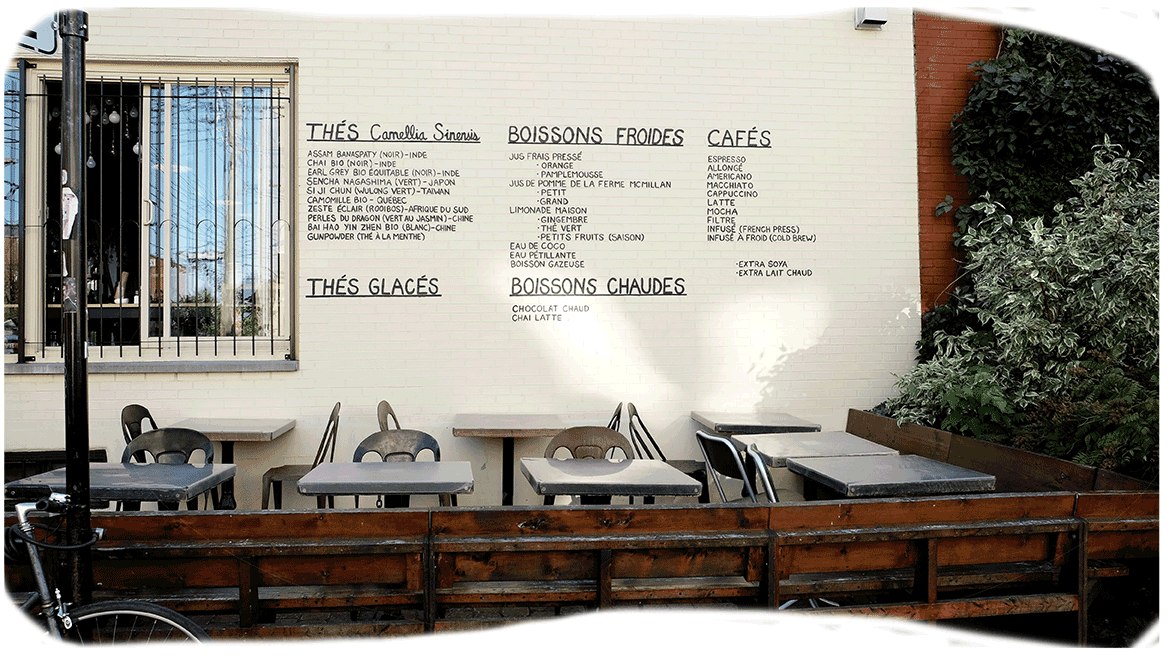 THÉS Camellia Sinensis
ASSAM BANASPATY (NOIR)-INDE
CHAI BIO (NOIR)-INDE
EARL GREY BIO ÉQUITABLE (NOIR)-INDE
SENCHA NAGASHIMA (VERT)-JAPON
SI JI CHUN (WULONG VERT)-TAIWAN
CAMOMILLE BIO - QUÉBEC
ZESTE ÉCLAIR (ROOIBOS)-AFRIQUE DU SUD
PERLES DU DRAGON (VERT AU JASMIN)-CHINE
BAI HAO YIN ZHEN BIO (BLANC)-CHINE
GUNPOWDER (THÉ À LA MENTHE)
THÉS GLACÉS
BOISSONS FROIDES
JUS FRAIS PRESSÉ
·ORANGE
·PAMPLEMOUSSE
JUS DE POMME DE LA FERME MCMILLAN
·PETIT
·GRAND
LIMONADE MAISON
·GINGEMBRE
·THÉ VERT
·PETITS FRUITS (SAISON)
EAU DE COCO
EAU PÉTILLANTE
BOISSON GAZEUSE
BOISSONS CHAUDES
CHOCOLAT CHAUD
CHAI LATTE
CAFÉS
ESPRESSO
ALLONGÉ
AMERICANO
MACCHIATO
CAPPUCCINO
LATTE
MOCHA
FILTRE
INFUSÉ (FRENCH PRESS)
INFUSÉ À FROID (COLD BREW)
·EXTRA SOYA
·EXTRA LAIT CHAUD